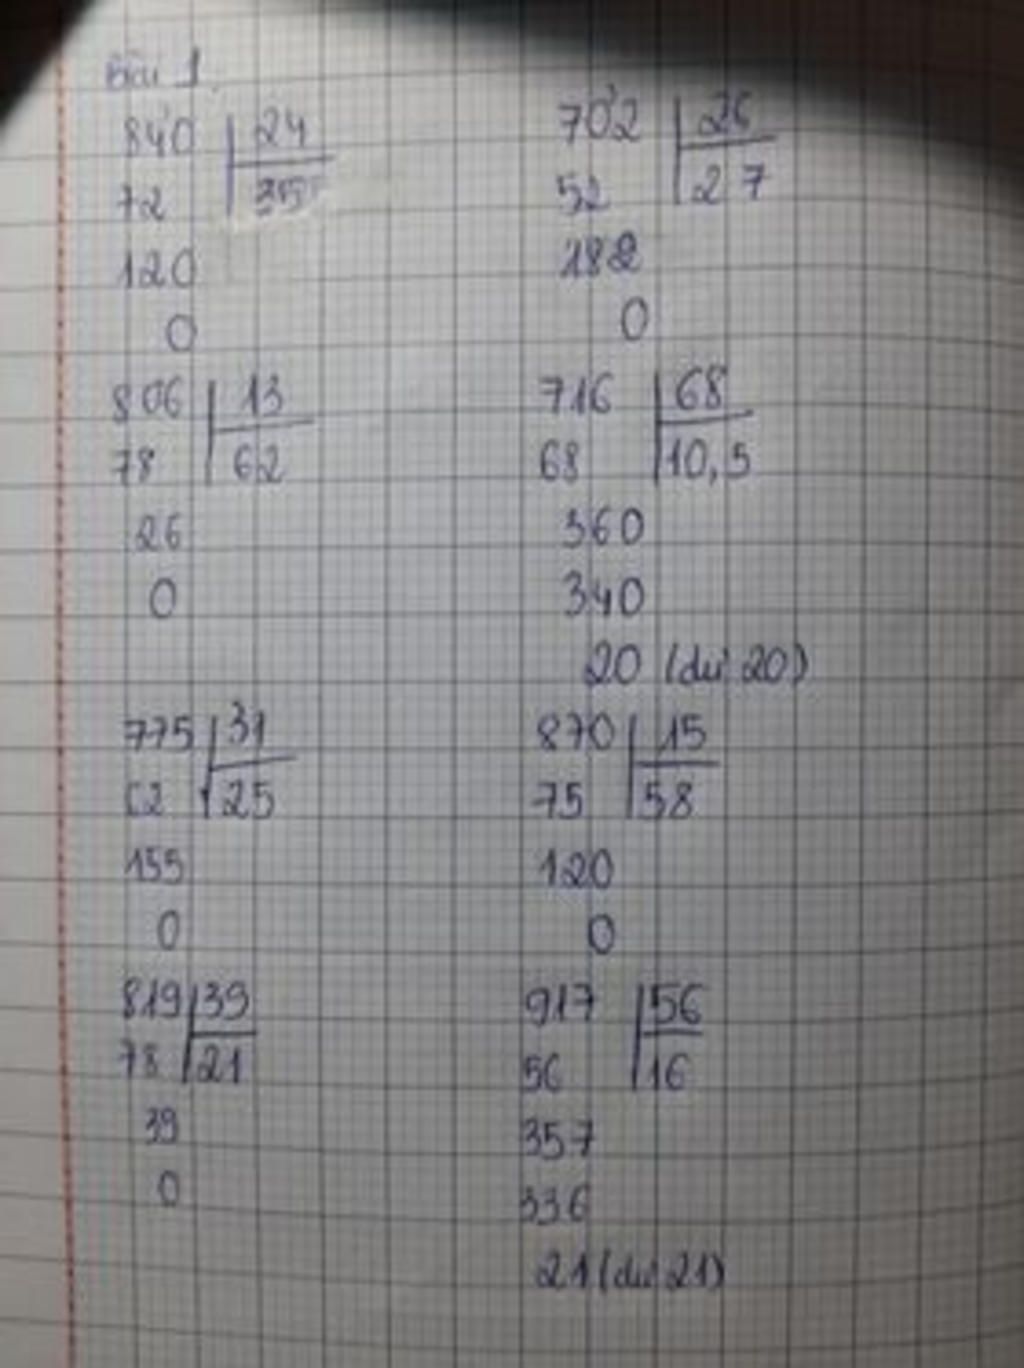 Bài 1
840 24
72 35
120
0
702 26
52 27
182
0
806 13
78 62
26
0
716 68
68 10,5
360
340
20 (dư 20)
775 31
62 25
155
0
870 15
75 58
120
0
819 39
78 21
39
0
917 56
56 16
357
336
21 (dư 21)